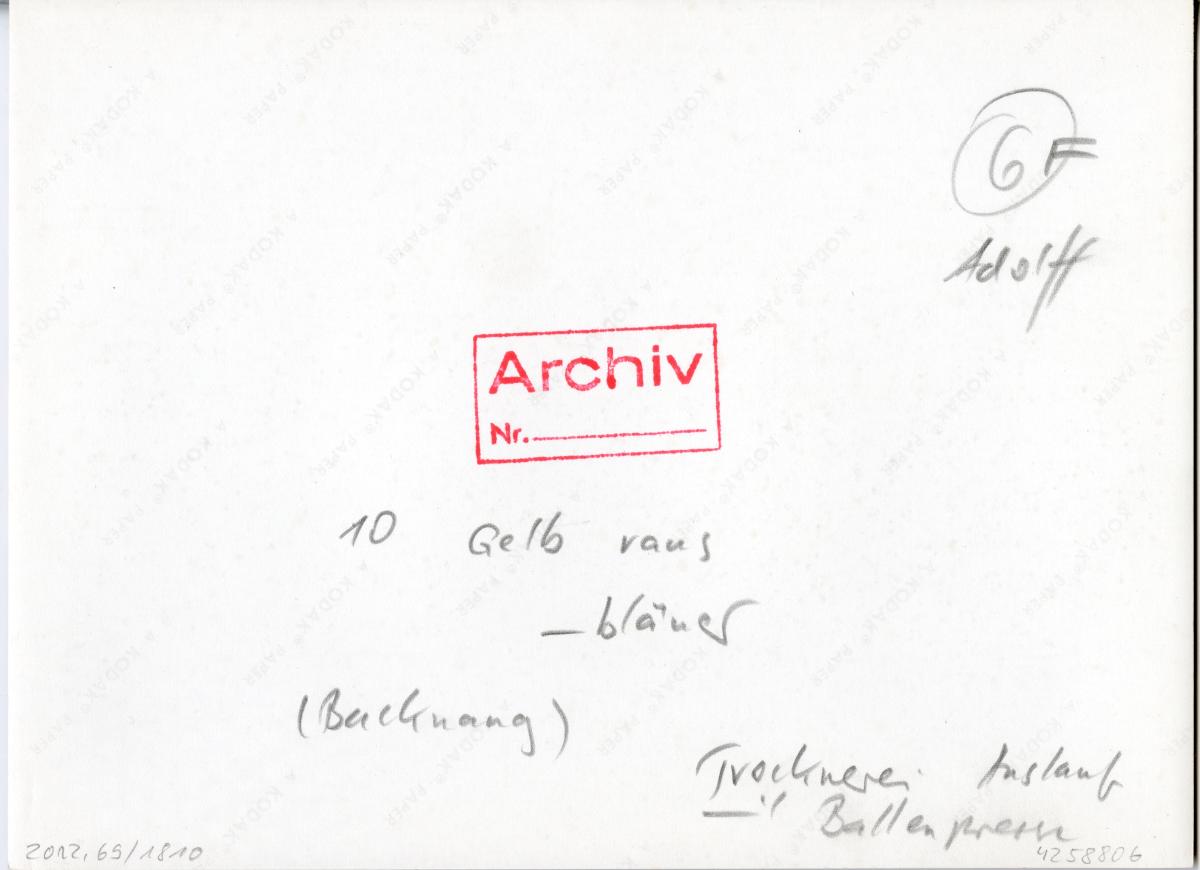 6 F
Adolff
Archiv
Nr.
10 Gelb raus
– bläuer
(Backnang)
Trocknerei Auslauf
mit Ballenpresse
2012, 69/1810
4258806
A KODAK® PAPER